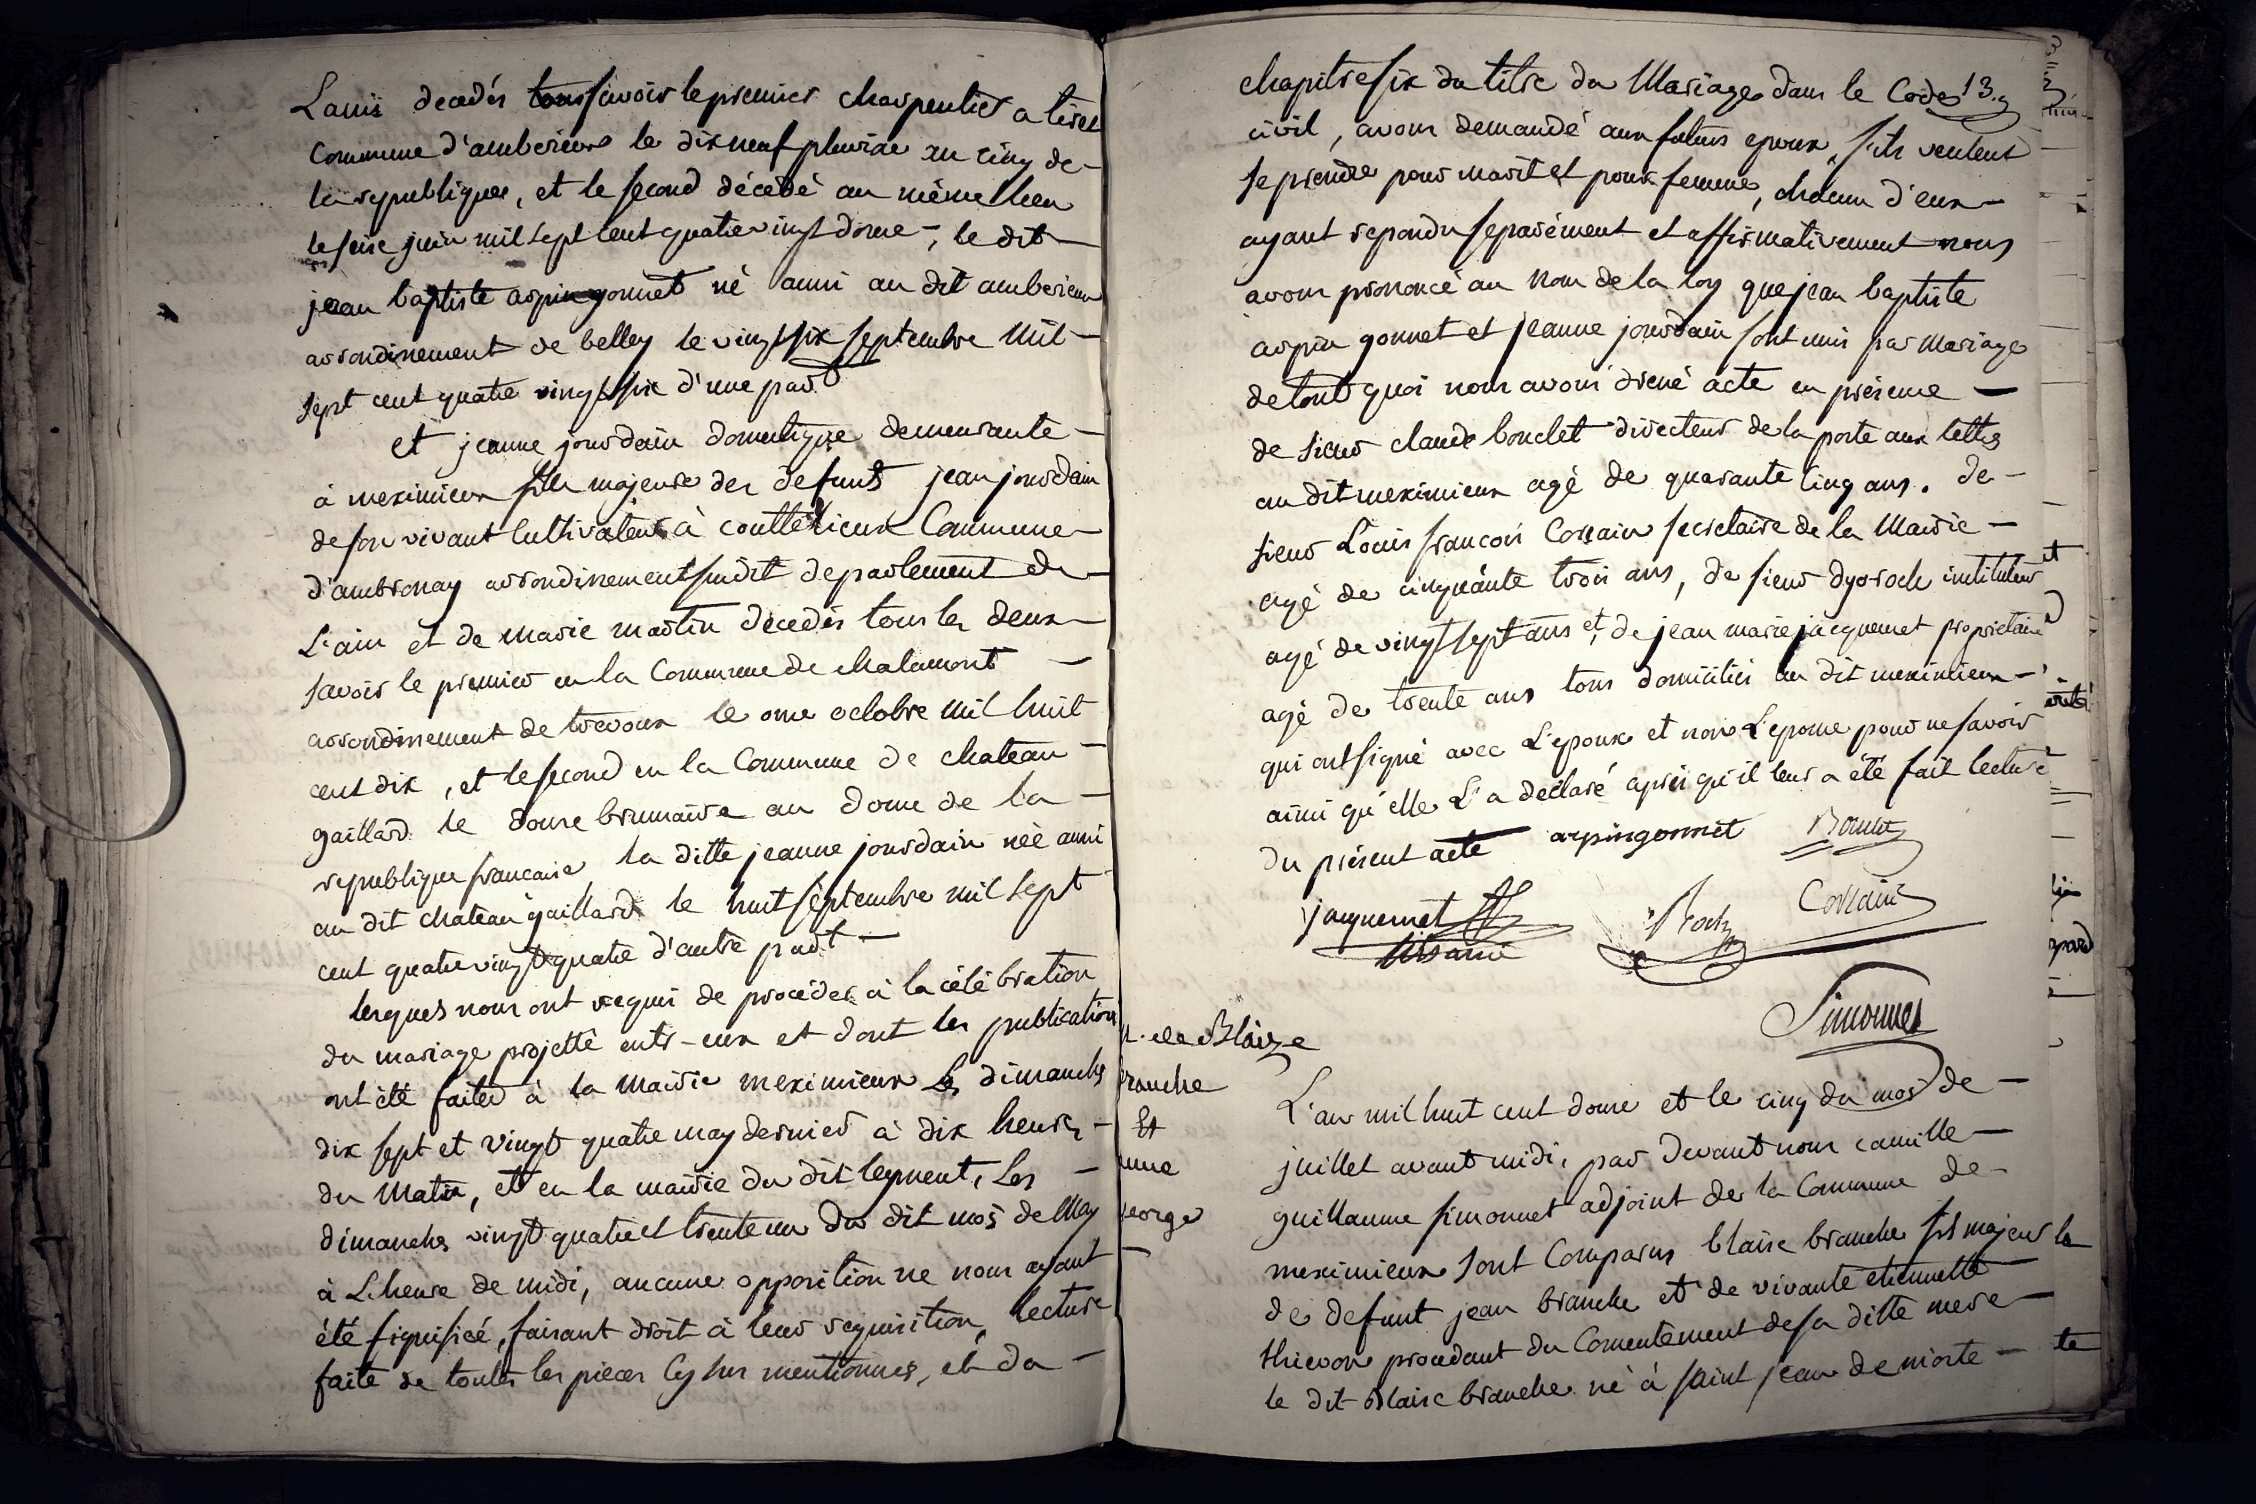 Lauis decedés savoir le premier charpentier a tiret
Commune d'amberieux le dix neuf pluviose an cinq de
la republique, et le second décédé au même lieu
le seise juin mil sept cent quatre vingt douze, le dit
jean baptiste arpingonnet né aussi au dit amberieux
arrondissement de belley le vingt six septembre mil
sept cent quatre vingt six d'une part
et jeanne jourdain domestique demeurante
à meximieux fille majeure des defunts jean jourdain
de son vivant Cultivateur à couttelieux Commune
d'ambronay arrondissement susdit departement de
L'ain et de marie martin décedés tous les deux
savoir le premier en la Commune de chalamont
arrondissement de trevoux le onze octobre mil huit
cent dix, et le second en la Commune de chateau
gaillard le douze brumaire an douze de la
republique francaise la ditte jeanne jourdain née aussi
au dit chateau gaillard le huit septembre mil sept
cent quatre vingt quatre d'autre part
lesquels nous ont requis de proceder à la célébration
du mariage projetté entr-eux et dont les publications
ont été faites à la mairie meximieux les dimanches
dix sept et vingt quatre may dernier à dix heures
du matin, et en la mairie du dit leyment, les
dimanches vingt quatre et trente un du dit mois de May
à L'heure de midi, aucune opposition ne nous ayant
été signifiée, faisant droit à leur requisition, lecture
faite de toutes les pieces cy sus mentionnés, et du
chapitre six du titre du Mariage dans le Code 13.
civil, avons demandé aux futurs epoux s'ils veulent
se prendre pour marit et pour femme, chacun d'eux
ayant repondu separément et affirmativement nous
avons prononcé au nom de la loy que jean baptiste
arpin gonnet et jeanne jourdain sont unis par mariage
de tout quoi nous avons dressé acte en présence
de sieur claude bouclet directeur de la poste aux lettres
au dit meximieux agé de quarante cinq ans. de
sieur Louis francois Corrain secretaire de la Mairie
agé de cinquante trois ans, de sieur dyoroch instituteur
agé de vingt sept ans et de jean marie jacquemet proprietaire
agé de trente ans tous domiciliés au dit meximieux
qui ont signé avec L'epoux et non L'epouse pour ne savoir
ainsi qu'elle L'a déclaré après qu'il leur a été fait lecture
du présent acte arpingonnet
jacquemet Corrain
Simonnet
de Blaize
branche
Et
george
L'an mil huit cent douze et le cinq du mois de
juillet avant midi, par devant nous camille
guillaume simonnet adjoint de la Commune de
meximieux sont Comparus blaise branche fils majeur
de defunt jean branche et de vivante etiennette
thievon procedant du Consentement de sa ditte mere
le dit Blaise branche né à saint jean de niorte